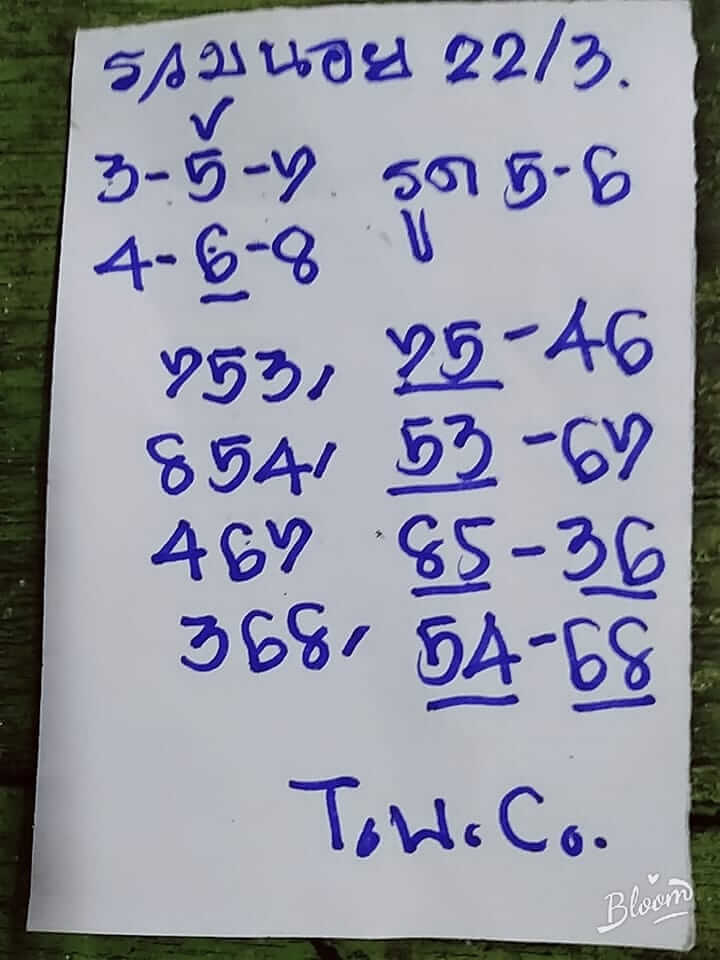 ฮานอย 22/3.
3-5-7 รูด 5-6
4-6-8
753, 75-46
854, 53-67
467 85-36
368, 54-68
T.W.Co.
Bloom